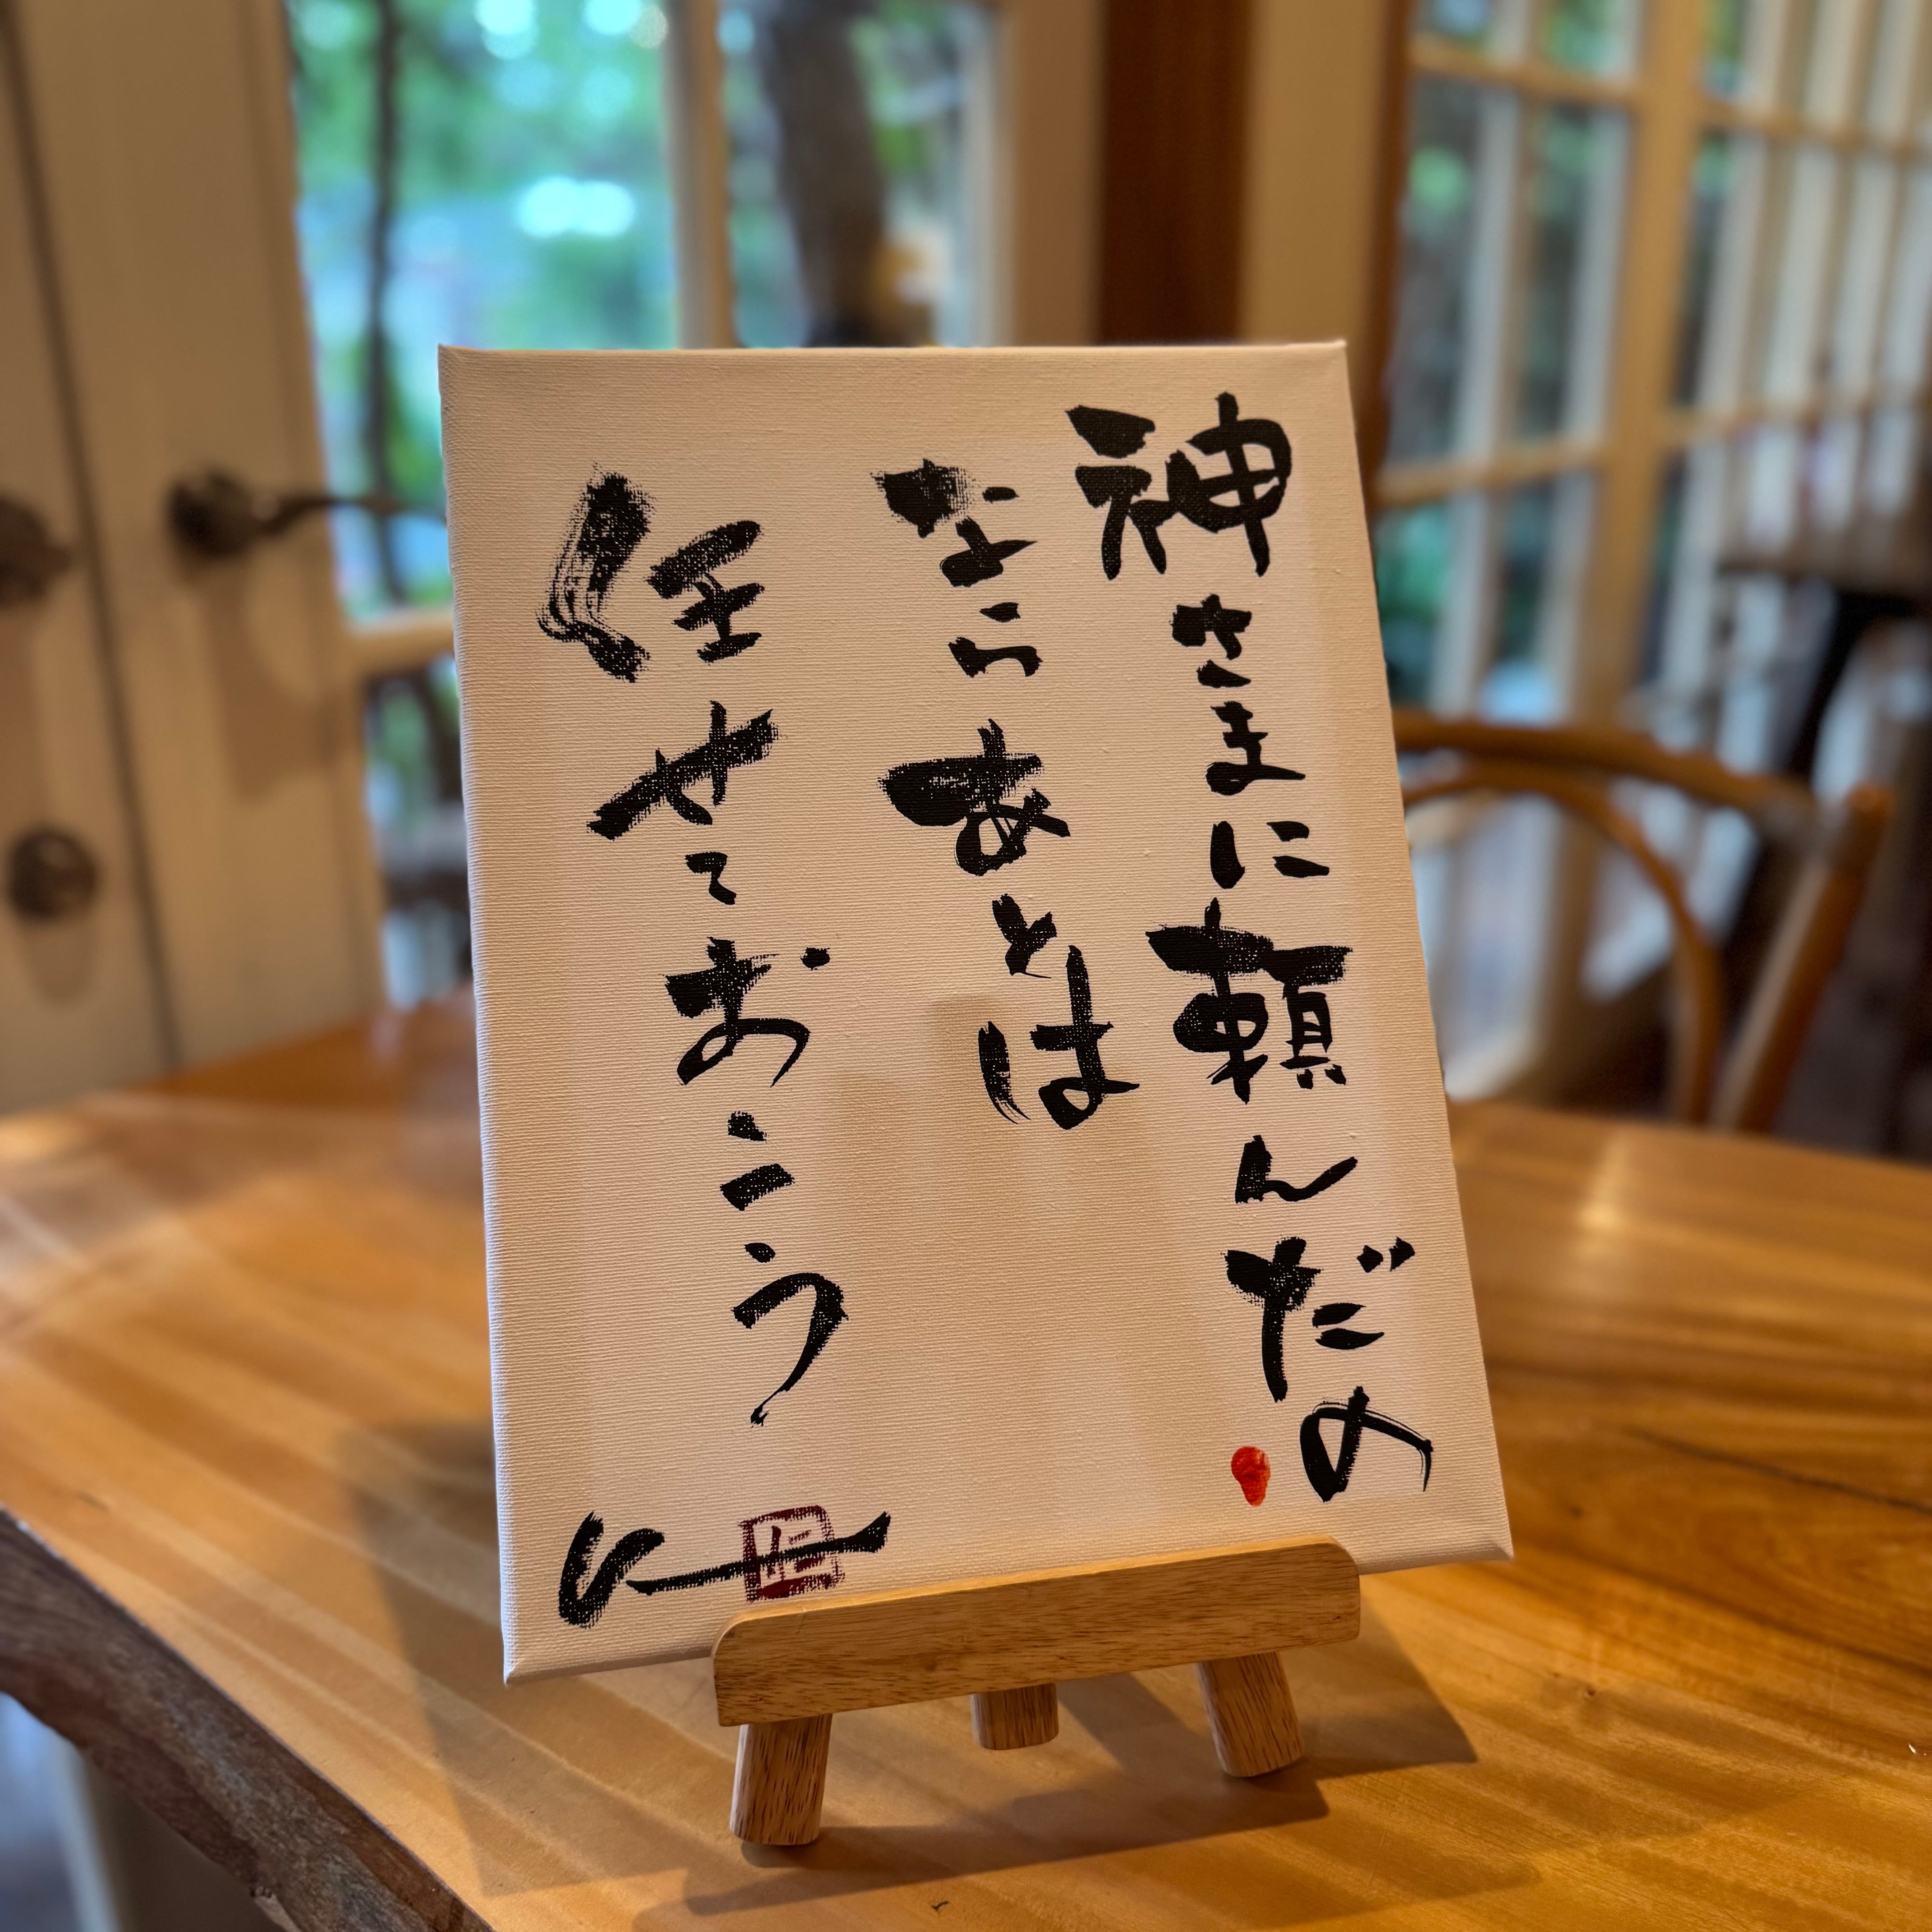 神さまに頼んだの
ならあとは
任せておこう
仁